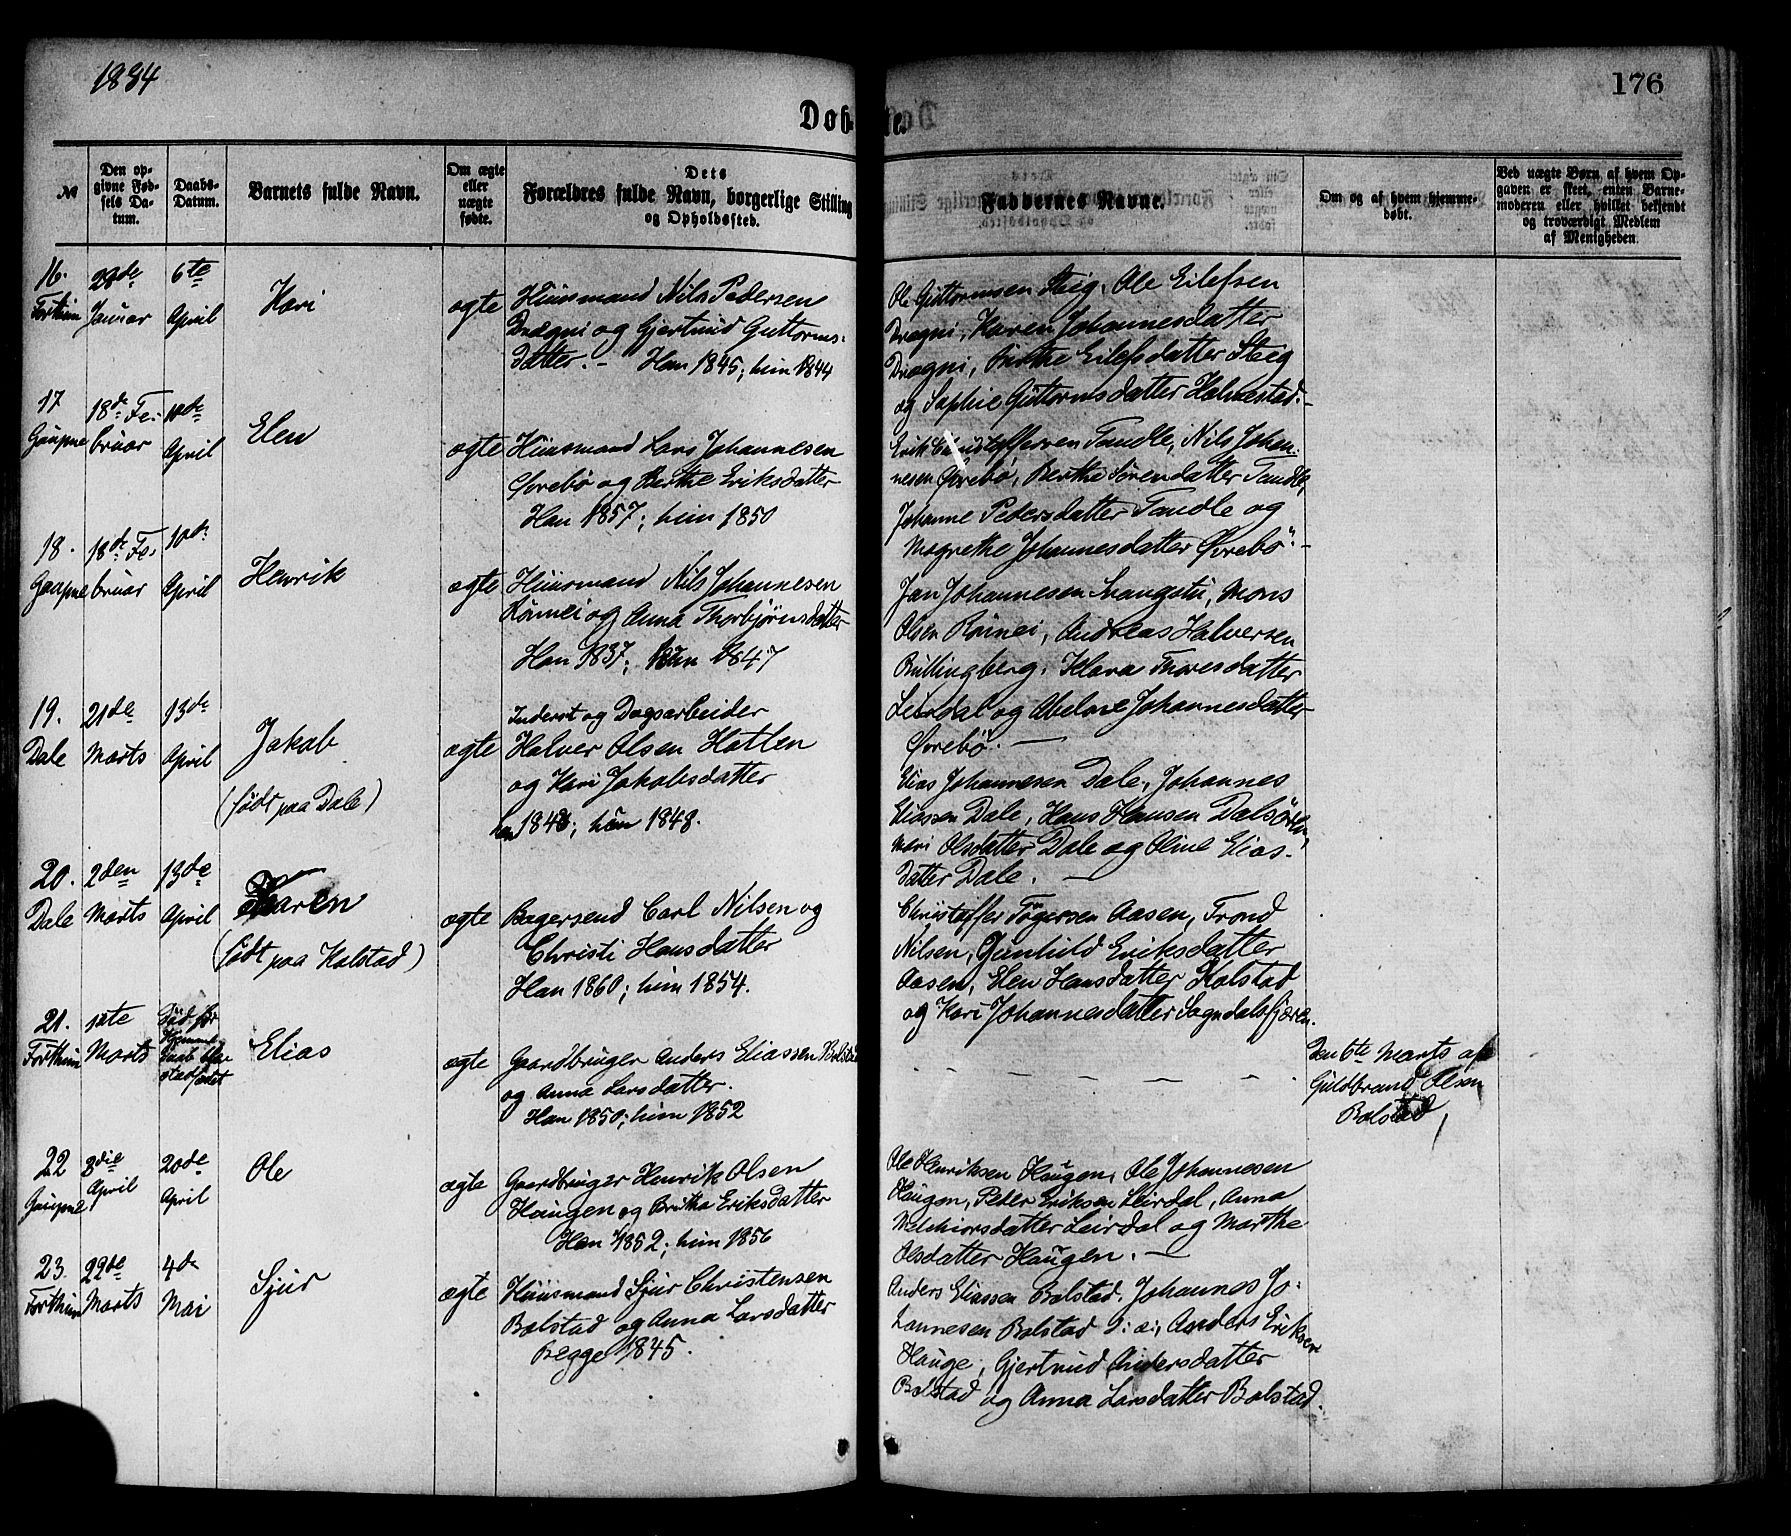 1884
176
Døb-
te.
№
Den op-
givne Fød-
sels Da-
tum.
Daabs-
Datum.
Barnets fulde Navn.
Om ægte
eller
uægte
fødte.
Dets
Forældres fulde Navn, borgerlige Stilling
og Opholdssted.
Faddernes Navne.
Om og af hvem hjemme-
døbt.
Ved uægte Børn, af hvem Op-
gaven er skeet, enten Barne-
moderen eller hvilket bekjendt
og troværdigt Medlem
af Menigheden.
16. 28de 6te
Forthun Januar April Kari ægte Huusmand Nils Pedersen
Drægni og Gjertrud Guttorms-
datter. - Han 1845; hun 1844
Ole Guttormsen Steig, Ole Eilefsen
Drægni, Karen Johannesdatter
Drægni, Birthe Eilefsdatter Steig
og Sophie Guttormsdatter Halvestad. -
17 18de Fe- 10de
Gaupne bruar April Elen ægte Huusmand Lars Johannesen
Øvrebø og Berthe Eriksdatter
Han 1857; hun 1850
Erik Christoffersen Tandle, Nils Johan-
nesen Øvrebø, Berthe Sørensdatter Tandle,
Johanne Pedersdatter Tandle og
Magrethe Johannesdatter Øvrebø. -
18. 18de Fe- 10de
Gaupne bruar April Henrik ægte Huusmand Nils Johannesen
Rønnei og Anna Thorbjørnsdatter
Han 1837; hun 1847
Jan Johannesen Svangstu, Mons
Olsen Rønnei, Andreas Halversen
Bullingberg, Klara Thoresdatter
Leirdal og Abelone Johannesdatter
Øvrebø. -
19. 21de 13de
Dale Marts April Jakob
(født paa Dale)
ægte Inderst og Dagsarbeider
Halver Olsen Hatlen
og Kari Jakobsdatter
han 1848; hun 1848.
Elias Johannesen Dale, Johannes
Eliassen Dale, Hans Hansen Dalsøren,
Mari Olsdatter Dale og Oline Elias-
datter Dale. -
20. 2den 13de
Dale Marts April Karen
(født paa Kalstad)
ægte Bagersvend Carl Nilsen og
Christi Hansdatter
Han 1860; hun 1854.
Christoffer Tøgersen Aasen, Trond
Nilsen, Gunhild Eriksdatter
Aasen, Elen Hansdatter Kalstad
og Kari Johannesdatter Sogndalsfjæren.
21. 1ste
Forthun Marts Elias ægte Gaardbruger Anders Eliassen Bolstad
og Anna Larsdatter.
Han 1850; hun 1852
Den 6te Marts af
Guldbrand Olsen
Bolstad
22 8die 20de
Gaupne April April Ole ægte Gaardbruger Henrik Olsen
Haugen og Britha Eriksdatter
Han 1852; hun 1856
Ole Henriksen Haugen, Ole Johannesen
Haugen, Peder Eriksen Leirdal, Anna
Melchiorsdatter Leirdal og Marthe
Olsdatter Haugen. -
23. 22de 4de
Forthun Marts Mai Sjur ægte Huusmand Sjur Christensen
Bolstad og Anna Larsdatter
Begge 1845.
Anders Eliassen Bolstad, Johannes Jo-
hannesen Bolstad Anders Eriksen
Hauge, Gjertrud Andersdatter
Bolstad og Anna Larsdatter Bolstad.